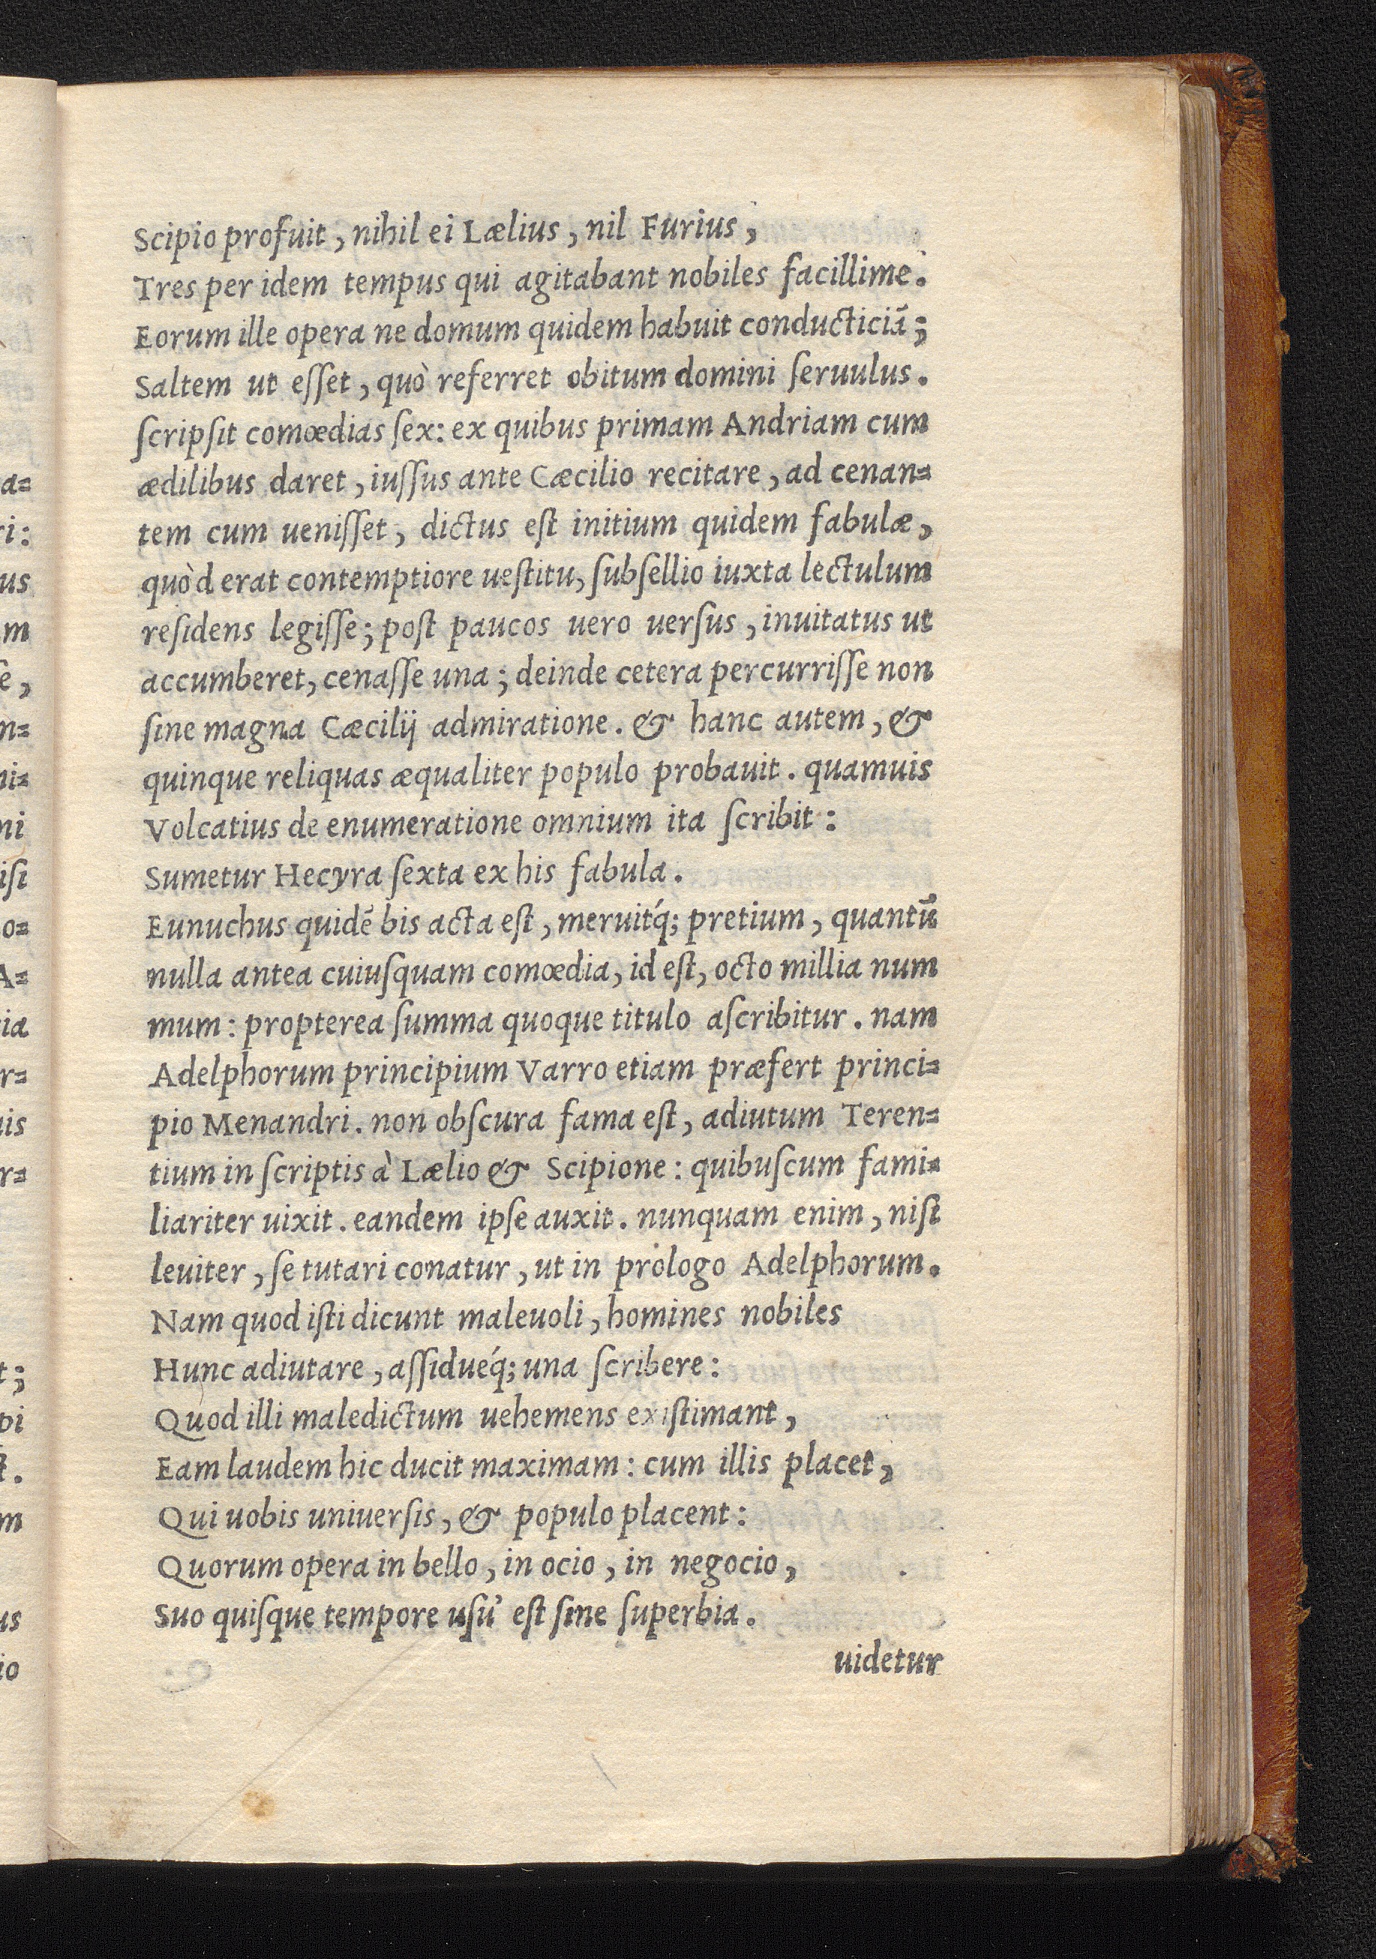 Scipio profuit, nihil ei Lælius, nil Furius,
Tres per idem tempus qui agitabant nobiles facillime.
Eorum ille opera ne domum quidem habuit conducticiā;
Saltem ut esſet, quò referret obitum domini ſeruulus.
ſcripſit comœdias ſex: ex quibus primam Andriam cum
ædilibus daret, iuſſus ante Cæcilio recitare, ad cenan=
tem cum ueniſſet, dictus eſt initium quidem fabulæ,
quòd erat contemptiore ueſtitu, ſubſellio iuxta lectulum
reſidens legiſſe; poſt paucos uero uerſus, inuitatus ut
accumberet, cenaſſe una; deinde cetera percurriſſe non
ſine magna Cæcilij admiratione. & hanc autem, &
quinque reliquas æqualiter populo probauit. quamuis
Volcatius de enumeratione omnium ita ſcribit:
Sumetur Hecyra ſexta ex his fabula.
Eunuchus quidē bis acta eſt, meruitq́; pretium, quantū
nulla antea cuiuſquam comœdia, id eſt, octo millia num
mum: propterea ſumma quoque titulo aſcribitur. nam
Adelphorum principium Varro etiam præfert princi=
pio Menandri. non obſcura fama eſt, adiutum Teren=
tium in ſcriptis à Lælio & Scipione: quibuſcum fami=
liariter uixit. eandem ipſe auxit. nunquam enim, niſi
leuiter, ſe tutari conatur, ut in prologo Adelphorum.
Nam quod iſti dicunt maleuoli, homines nobiles
Hunc adiutare, aſſidueq́; una ſcribere:
Quod illi maledictum uehemens exiſtimant,
Eam laudem hic ducit maximam: cum illis placet,
Qui uobis uniuerſis, & populo placent:
Quorum opera in bello, in ocio, in negocio,
Suo quiſque tempore uſu' eſt ſine ſuperbia.
uidetur